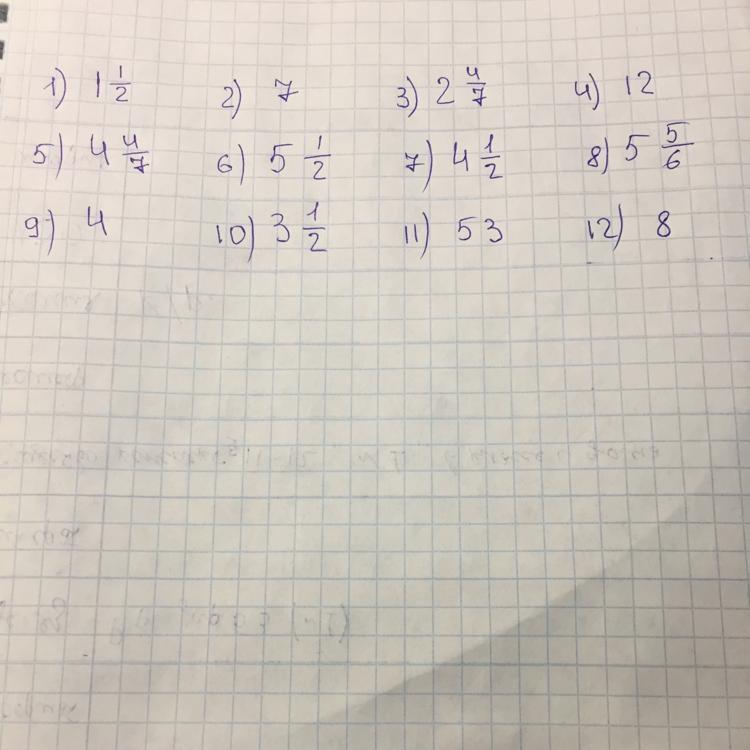 1) 1 1/2 2) 7 3) 2 4/7 4) 12
5) 4 4/7 6) 5 1/2 7) 4 1/2 8) 5 5/6
9) 4 10) 3 1/2 11) 53 12) 8